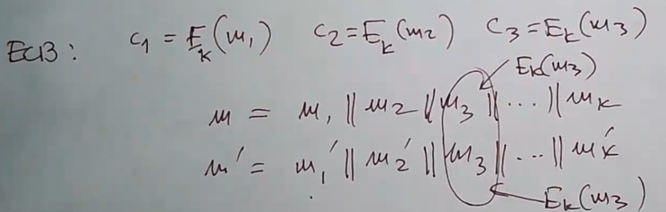 ECB: c₁ = E_k(m₁) c₂ = E_k(m₂) c₃ = E_k(m₃)
E_k(m₃)
m = m₁ || m₂ || m₃ || ... || m_k
m' = m₁' || m₂' || m₃ || ... || m_k'
E_k(m₃)